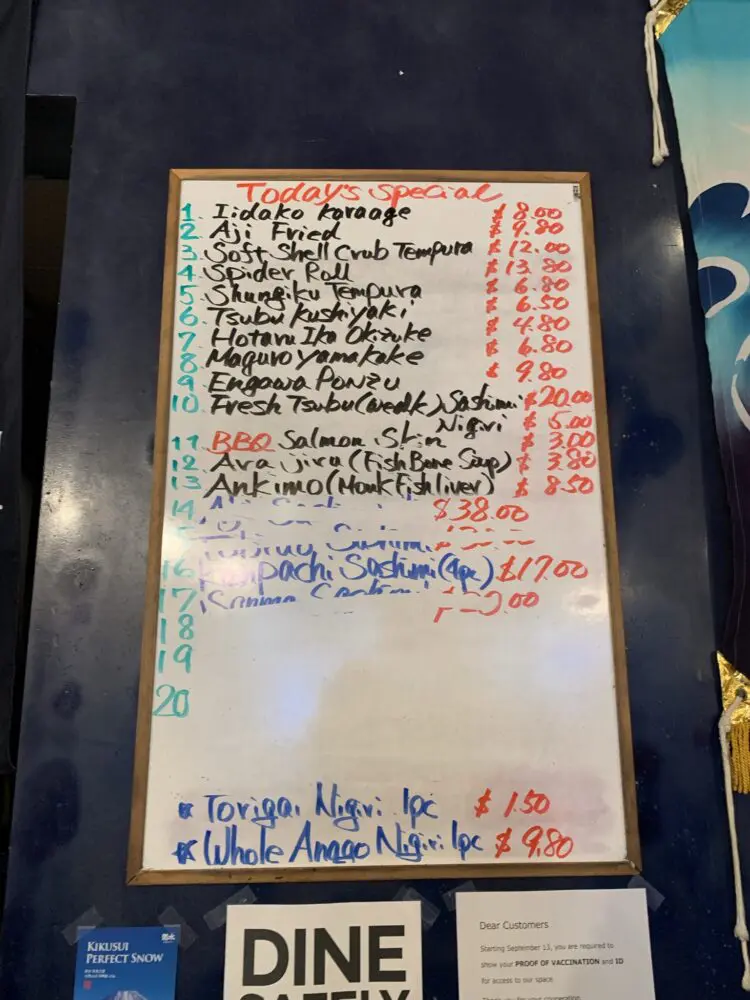 Today's Special
1. Iidako Karaage $ 8.00
2. Aji Fried $ 9.80
3. Soft Shell Crub Tempura $ 12.00
4. Spider Roll $ 13.80
5. Shungiku Tempura $ 6.80
6. Tsubu Kushiyaki $ 6.50
7. Hotaru Ika Okizuke $ 4.80
8. Maguro Yamakake $ 6.80
9. Engawa Ponzu $ 9.80
10. Fresh Tsubu (Welk) Sashimi $20.00
Nigiri $ 5.00
11. BBQ Salmon Skin $ 3.00
12. Ara jiru (Fish Bone Soup) $ 3.80
13. Ankimo (Monk Fish liver) $ 8.50
14 $38.00
16 Kanpachi Sashimi (4pc) $17.00
17
18
19
20
Torigai Nigiri 1pc $ 1.50
Whole Anago Nigiri 1pc $ 9.80
KIKUSUI
PERFECT SNOW
DINE
SAFELY
Dear Customers
Starting September 13, you are required to
show your PROOF OF VACCINATION and ID
for access to our space